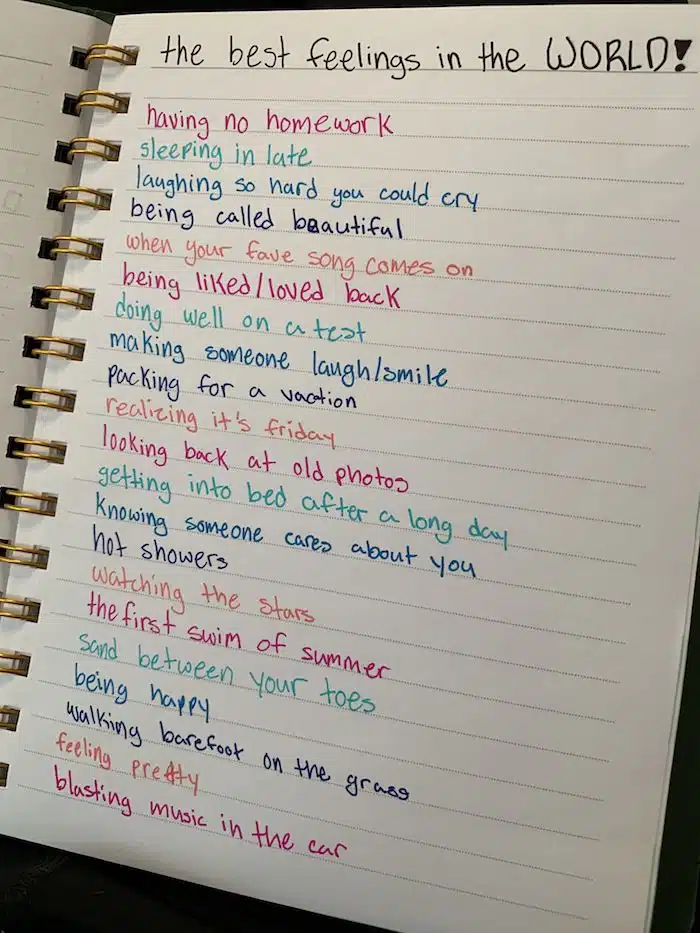 the best feelings in the WORLD!
having no homework
sleeping in late
laughing so hard you could cry
being called beautiful
when your fave song comes on
being liked/loved back
doing well on a test
making someone laugh/smile
packing for a vaction
realizing it's friday
looking back at old photos
getting into bed after a long day
knowing someone cares about you
hot showers
watching the stars
the first swim of summer
sand between your toes
being happy
walking barefoot on the grass
feeling pretty
blasting music in the car